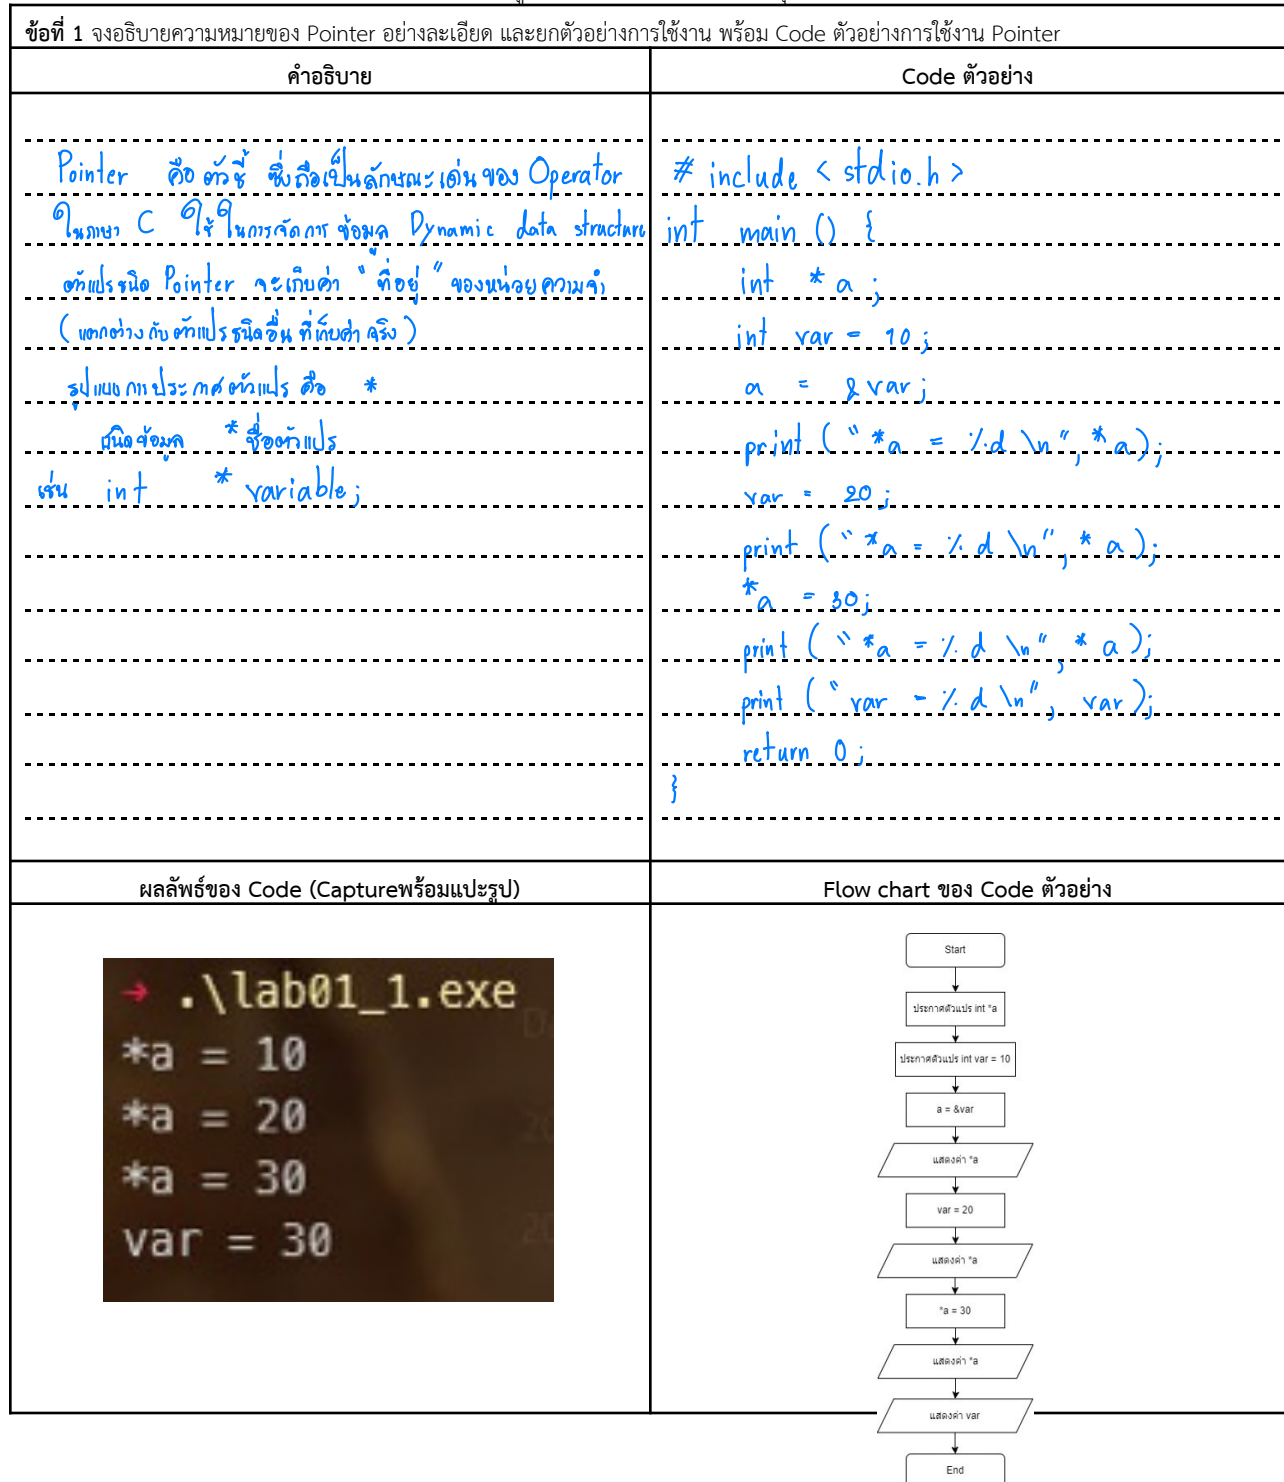 ข้อที่ 1 จงอธิบายความหมายของ Pointer อย่างละเอียด และยกตัวอย่างการใช้งาน พร้อม Code ตัวอย่างการใช้งาน Pointer
คำอธิบาย
Pointer คือ ตัวชี้ ซึ่งถือเป็นลักษณะเด่นของ Operator
ในภาษา C ใช้ในการจัดการ ข้อมูล Dynamic data structure
ตัวแปรชนิด Pointer จะเก็บค่า "ที่อยู่" ของหน่วยความจำ
(แตกต่างกับตัวแปรชนิดอื่น ที่เก็บค่าจริง)
รูปแบบการประกาศตัวแปร คือ *
ชนิดข้อมูล *ชื่อตัวแปร
เช่น int *variable;
Code ตัวอย่าง
# include < stdio.h >
int main () {
int * a ;
int var = 10 ;
a = & var ;
print ( " *a = %d \n" , * a ) ;
var = 20 ;
print ( " *a = % d \n" , * a ) ;
*a = 30 ;
print ( " *a = % d \n" , * a ) ;
print ( " var = % d \n" , var ) ;
return 0 ;
}
ผลลัพธ์ของ Code (Captureพร้อมแปะรูป)
➜ .\lab01_1.exe
*a = 10
*a = 20
*a = 30
var = 30
Flow chart ของ Code ตัวอย่าง
Start
ประกาศตัวแปร int *a
ประกาศตัวแปร int var = 10
a = &var
แสดงค่า *a
var = 20
แสดงค่า *a
*a = 30
แสดงค่า *a
แสดงค่า var
End